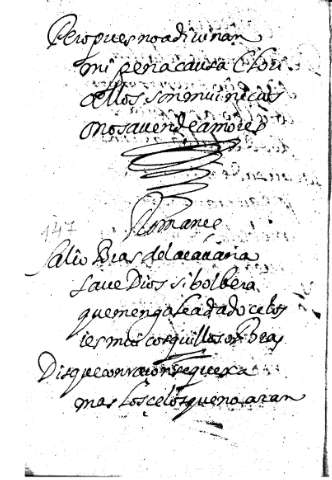 Pero pues no adivinan
mi pena causa Cloris
ellos son mui
o no saven de amores
147
Romance
Salio Bras de la cavaña
save Dios si bolbera
que menga le a dado celos
i es mui cosquilloso Bras
Dis que con raçon se quexa
mas los celos que no aran